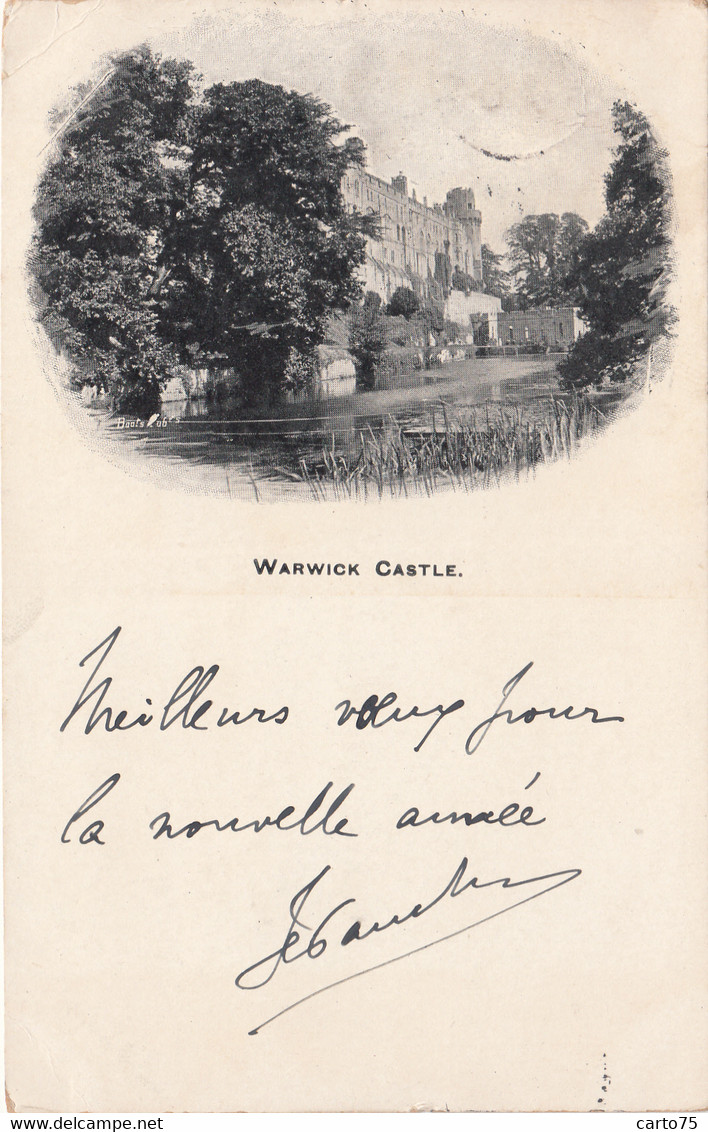 Boots Cub⁰ˢ
WARWICK CASTLE.
Meilleurs vœux pour
la nouvelle année
delcampe.net
carto75